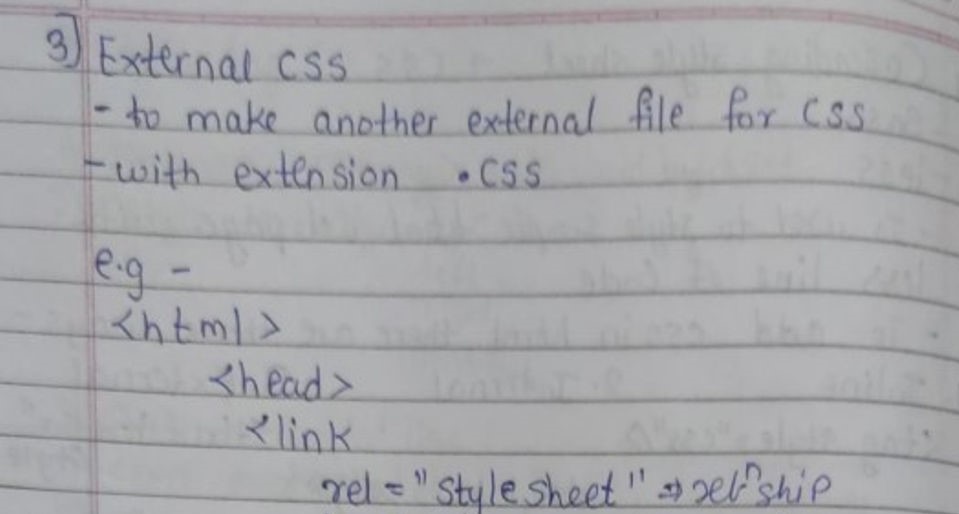 3) External css
- to make another external file for css
- with extension .css
e.g -
<html>
<head>
<link
rel = "stylesheet" ⇒ relⁿship